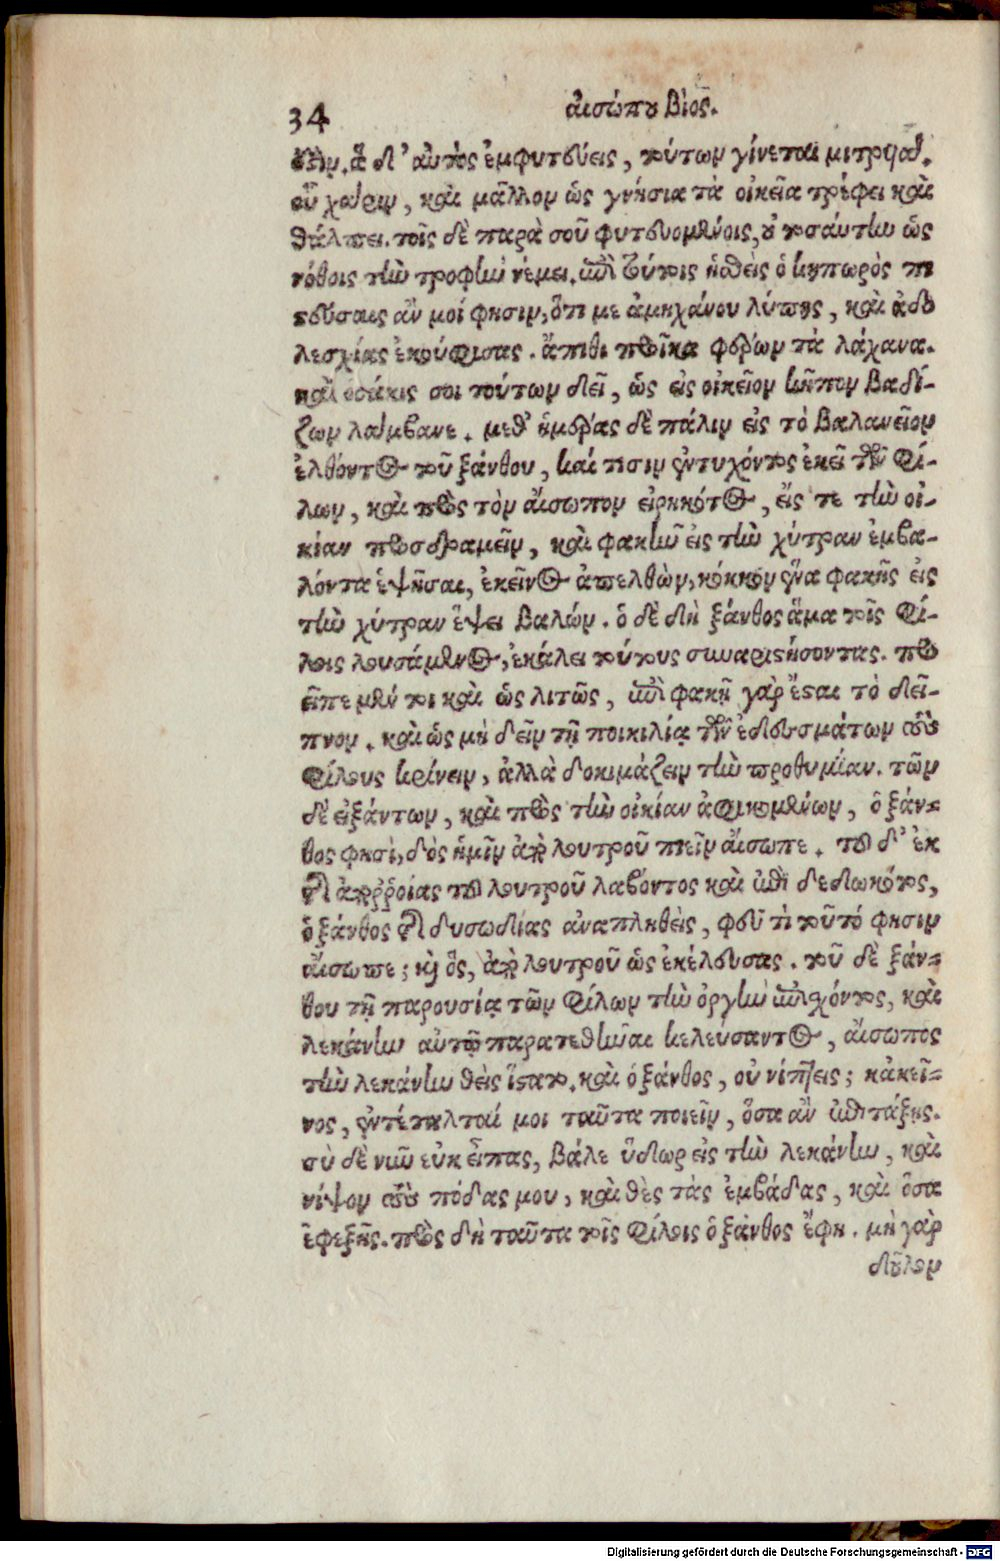 34 αἰσώπου βίος.
ἐστιν. ἃ δ' αὐτὸς ἐμφυτεύεις, τούτων γίνεται μητρυιά.
οὗ χάριν, καὶ μᾶλλον ὡς γνήσια τὰ οἰκεῖα τρέφει καὶ
θάλπει. τοῖς δὲ παρὰ σοῦ φυτευομένοις, οὐ τοσαύτην ὡς
νόθοις τὴν τροφὴν νέμει. ἐπὶ τούτοις ἡσθεὶς ὁ κηπωρὸς πι
στεύσαις ἄν μοί φησιν, ὅτι με ἀμηχάνου λύπης, καὶ ἀδο
λεσχίας ἐκούφισας. ἄπιθι προῖκα φέρων τὰ λάχανα.
καὶ ὁσάκις σοι τούτων δεῖ, ὡς εἰς οἰκεῖον κῆπον βαδί-
ζων λάμβανε. μεθ' ἡμέρας δὲ πάλιν εἰς τὸ βαλανεῖον
ἐλθόντος τοῦ ξάνθου, καί τισιν ἐντυχόντος ἐκεῖ τῶν φί-
λων, καὶ πρὸς τὸν αἴσωπον εἰρηκότος, εἴς τε τὴν οἰ-
κίαν προσδραμεῖν, καὶ φακῆν εἰς τὴν χύτραν ἐμβα-
λόντα ἑψῆσαι, ἐκεῖνος ἀπελθὼν, κόκκον ἕνα φακῆς εἰς
τὴν χύτραν ἕψει βαλών. ὁ δὲ δὴ ξάνθος ἅμα τοῖς φί-
λοις λουσάμενος, ἐκάλει τούτους συναριστήσοντας. προ
εῖπε μέν τοι καὶ ὡς λιτῶς, ἐπὶ φακῇ γὰρ ἔσται τὸ δεῖ-
πνον. καὶ ὡς μὴ δεῖν τῇ ποικιλίᾳ τῶν ἐδεσμάτων τοὺς
φίλους κρίνειν, ἀλλὰ δοκιμάζειν τὴν προθυμίαν. τῶν
δὲ εἰξάντων, καὶ πρὸς τὴν οἰκίαν ἀφικομένων, ὁ ξάν-
θος φησὶ, δὸς ἡμῖν ἀπὸ λουτροῦ πιεῖν αἴσωπε. τοῦ δ' ἐκ
τῆς ἀπορροίας τοῦ λουτροῦ λαβόντος καὶ ἐπιδεδωκότος,
ὁ ξάνθος τῆς δυσωδίας ἀναπλησθεὶς, φεῦ τὶ τοῦτό φησιν
αἴσωπε; καὶ ὃς, ἀπὸ λουτροῦ ὡς ἐκέλευσας. τοῦ δὲ ξάν-
θου τῇ παρουσίᾳ τῶν φίλων τὴν ὀργὴν ἐπισχόντος, καὶ
λεκάνην αὐτῷ παρατεθῆναι κελεύσαντος, αἴσωπος
τὴν λεκάνην θεὶς ἵστατο. καὶ ὁ ξάνθος, οὐ νίπτεις; κἀκεῖ-
νος, ἐντέταλταί μοι ταῦτα ποιεῖν, ὅσα ἂν ἐπιτάξῃς.
σὺ δὲ νῦν οὐκ εἶπας, βάλε ὕδωρ εἰς τὴν λεκάνην, καὶ
νίψον τοὺς πόδας μου, καὶ θὲς τὰς ἐμβάδας, καὶ ὅσα
ἐφεξῆς. πρὸς δὴ ταῦτα τοῖς φίλοις ὁ ξάνθος ἔφη. μὴ γὰρ
δοῦλον
Digitalisierung gefördert durch die Deutsche Forschungsgemeinschaft - DFG